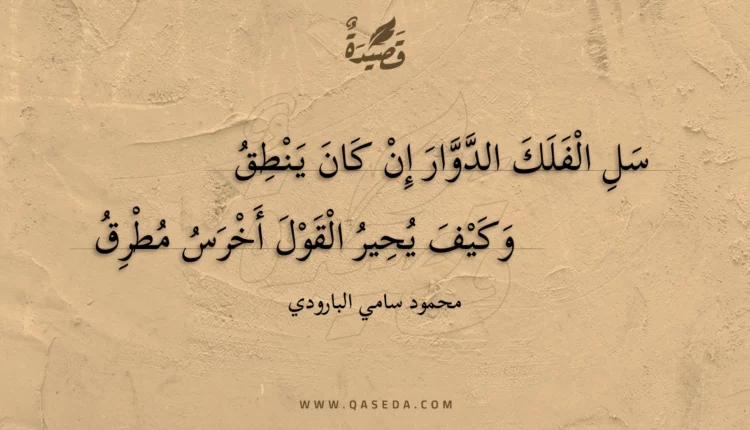 قَصِيدَةٌ
سَلِ الْفَلَكَ الدَّوَّارَ إِنْ كَانَ يَنْطِقُ
وَكَيْفَ يُحِيرُ الْقَوْلَ أَخْرَسُ مُطْرِقُ
محمود سامي البارودي
WWW.QASEDA.COM